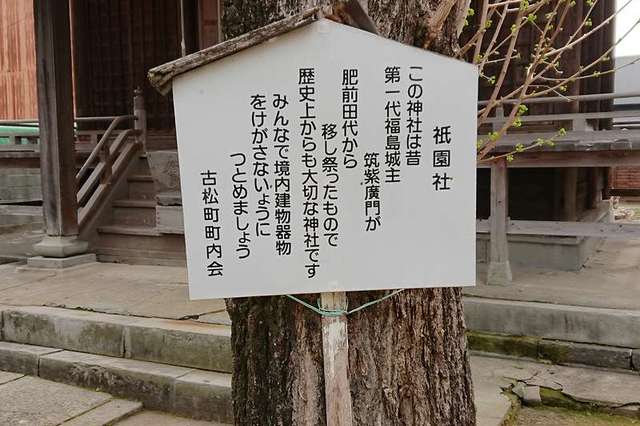 祇園社
この神社は昔
第一代福島城主
筑紫廣門が
肥前田代から
移し祭ったもので
歴史上からも大切な神社です
みんなで境内建物器物
をけがさないょうに
つとめましょう
古松町町内会